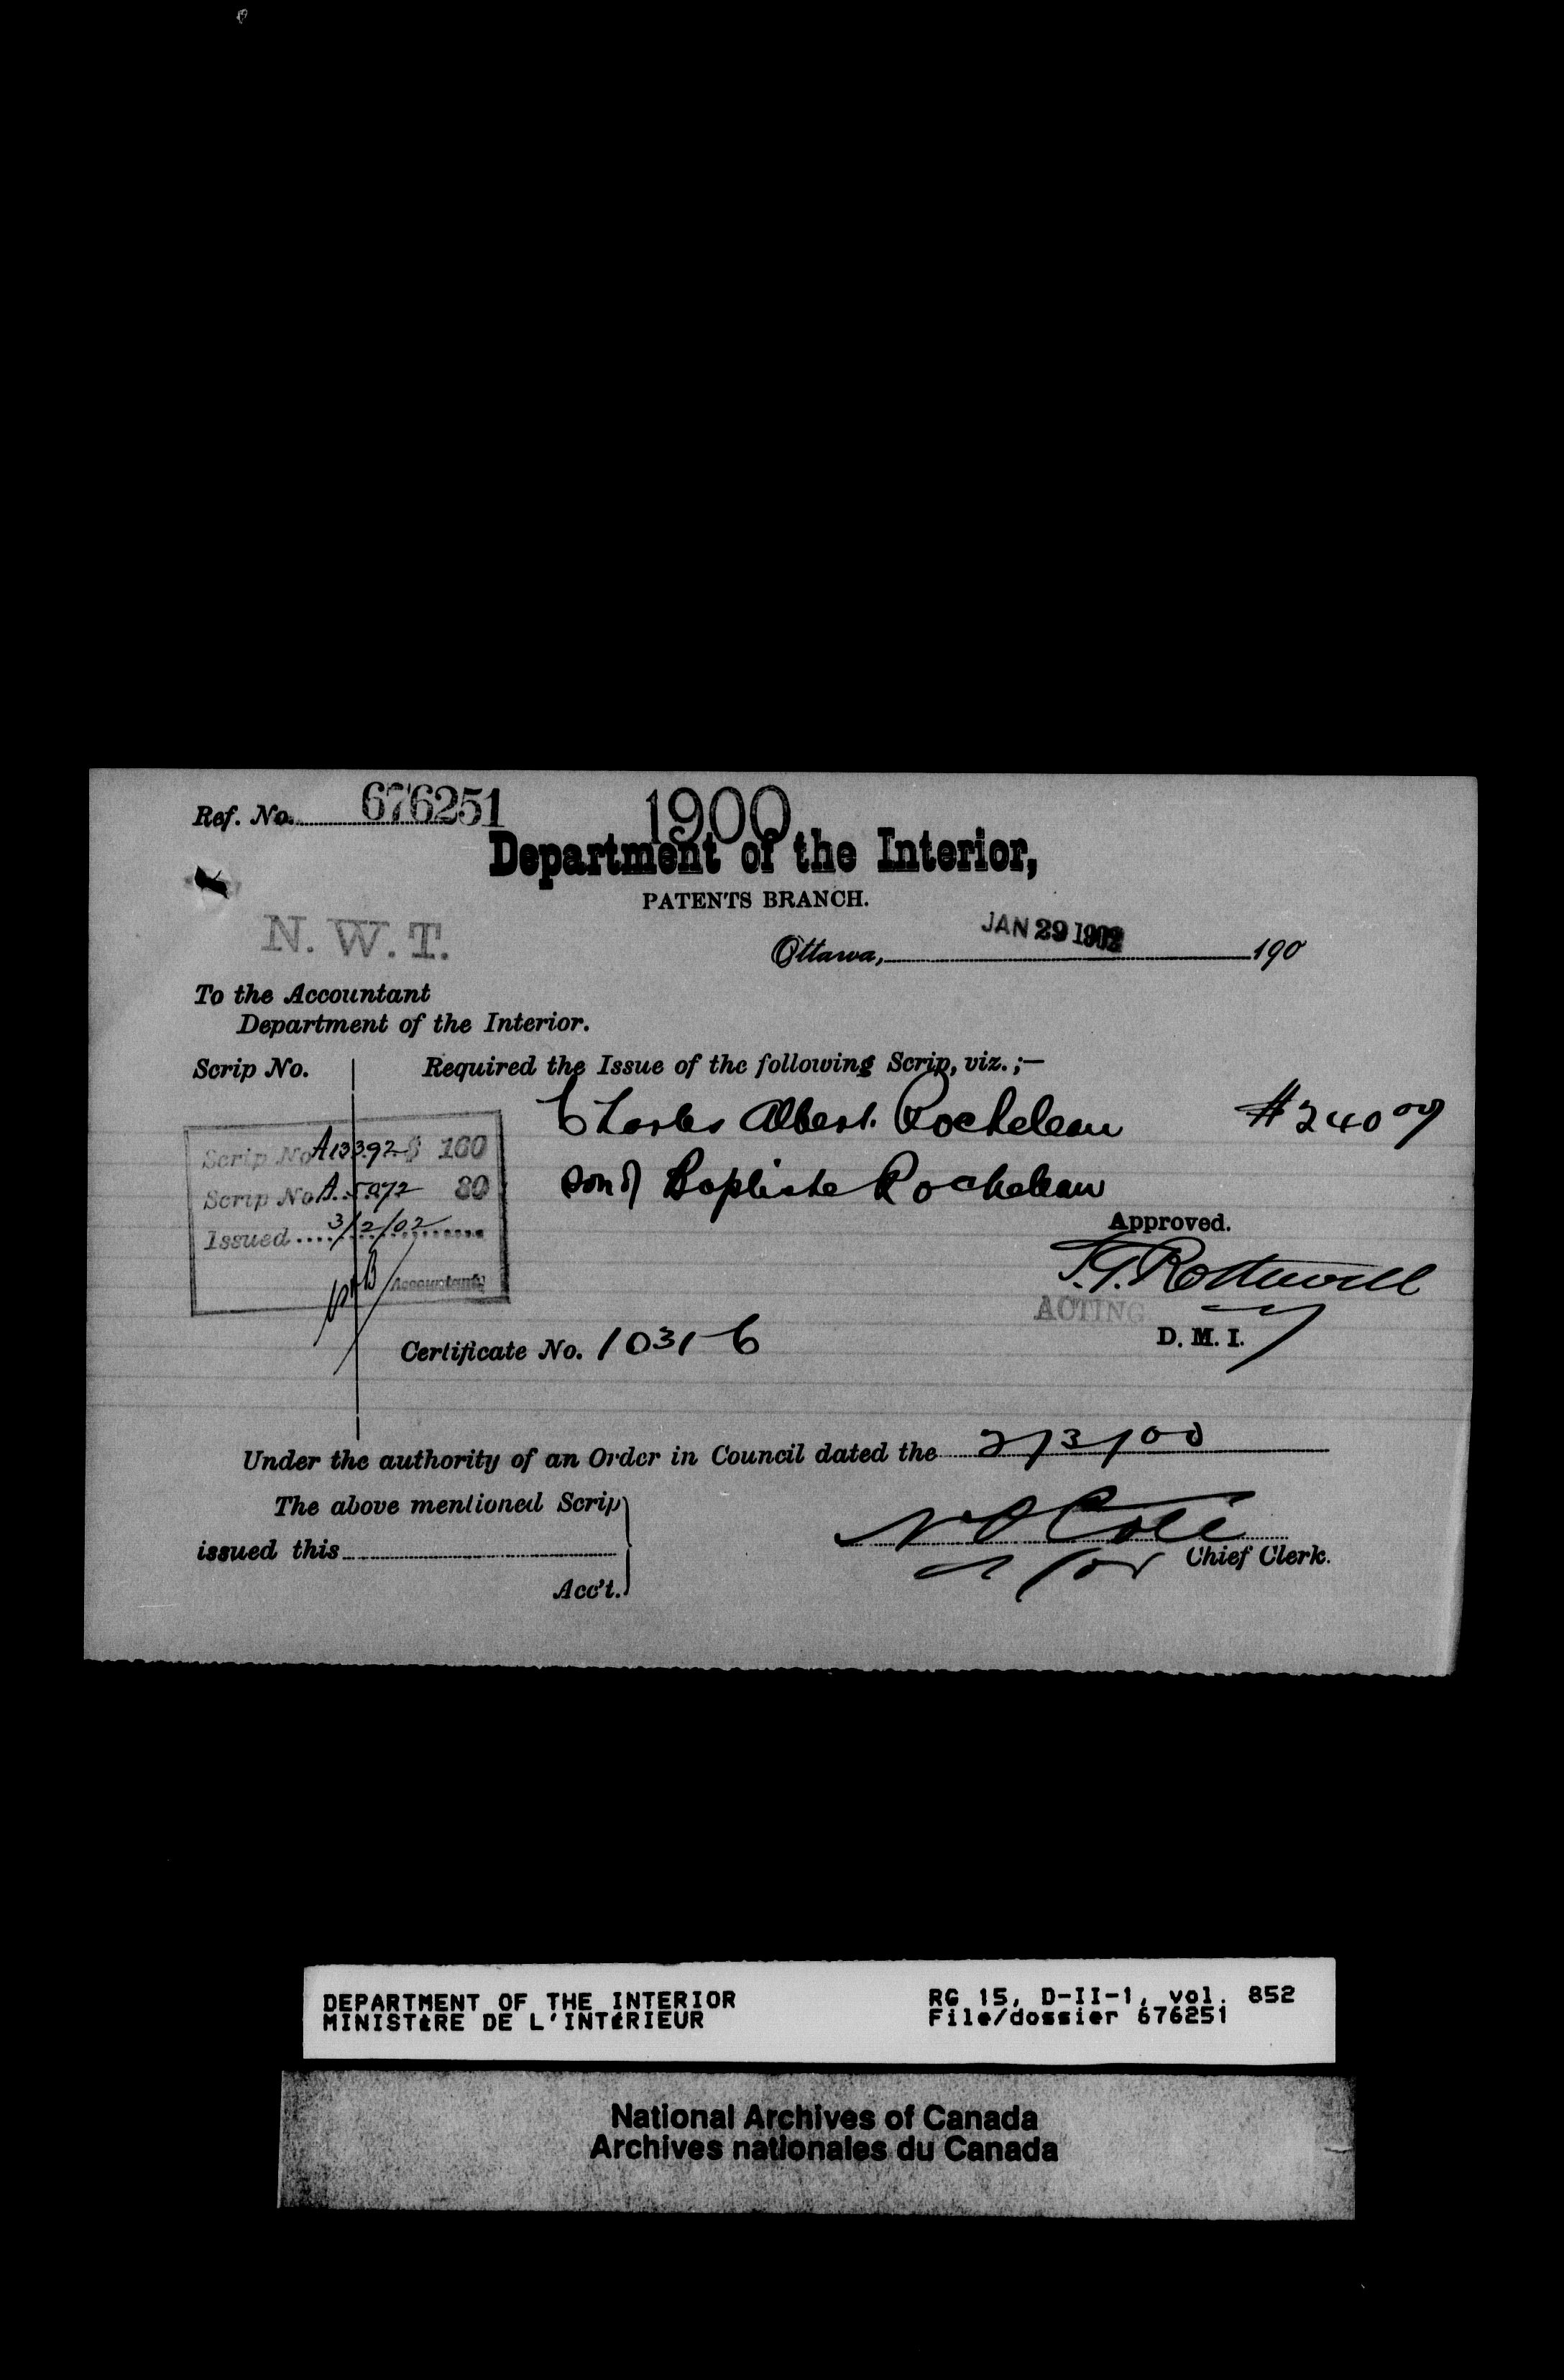 Ref. No. 676251
1900
Department of the Interior,
PATENTS BRANCH.
N. W. T.
Ottawa, JAN 29 1902 190
To the Accountant
Department of the Interior.
Scrip No. Required the Issue of the following Scrip, viz.;—
Charles Albert Rocheleau #240 00
Scrip No A13392 $ 160
son of Baptiste Rocheleau
Scrip No A. 5972 80
Issued .... 3/2/02
Approved.
T.G. Rothwell
Accountant
ACTING
D. M. I.
Certificate No. 1031 C
Under the authority of an Order in Council dated the 2/3/00
The above mentioned Scrip
issued this
N O Coté
for Chief Clerk.
Acc't.
DEPARTMENT OF THE INTERIOR RG 15, D-II-1, vol. 852
MINISTÈRE DE L'INTÉRIEUR File/dossier 676251
National Archives of Canada
Archives nationales du Canada